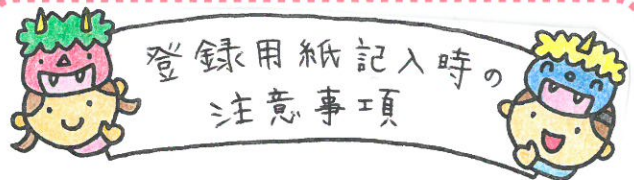 登録用紙記入時の
注意事項